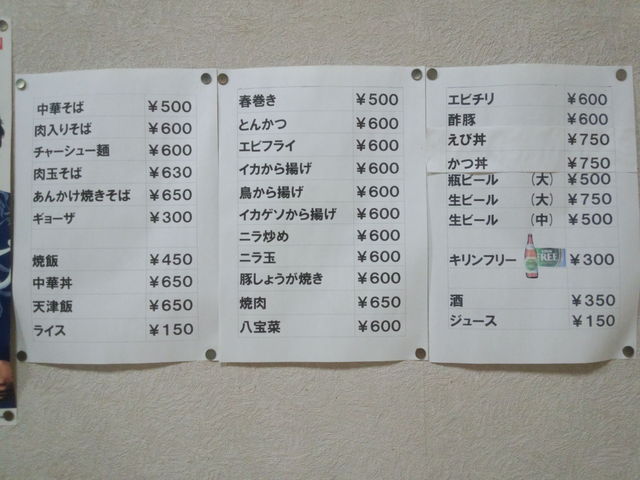 中華そば ￥500
肉入りそば ￥600
チャーシュー麺 ￥600
肉玉そば ￥630
あんかけ焼きそば ￥650
ギョーザ ￥300
焼飯 ￥450
中華丼 ￥650
天津飯 ￥650
ライス ￥150
春巻き ￥500
とんかつ ￥600
エビフライ ￥600
イカから揚げ ￥600
鳥から揚げ ￥600
イカゲソから揚げ ￥600
ニラ炒め ￥600
ニラ玉 ￥600
豚しょうが焼き ￥600
焼肉 ￥650
八宝菜 ￥600
エビチリ ￥600
酢豚 ￥600
えび丼 ￥750
かつ丼 ￥750
瓶ビール (大) ￥500
生ビール (大) ￥750
生ビール (中) ￥500
キリンフリー FREE ￥300
酒 ￥350
ジュース ￥150